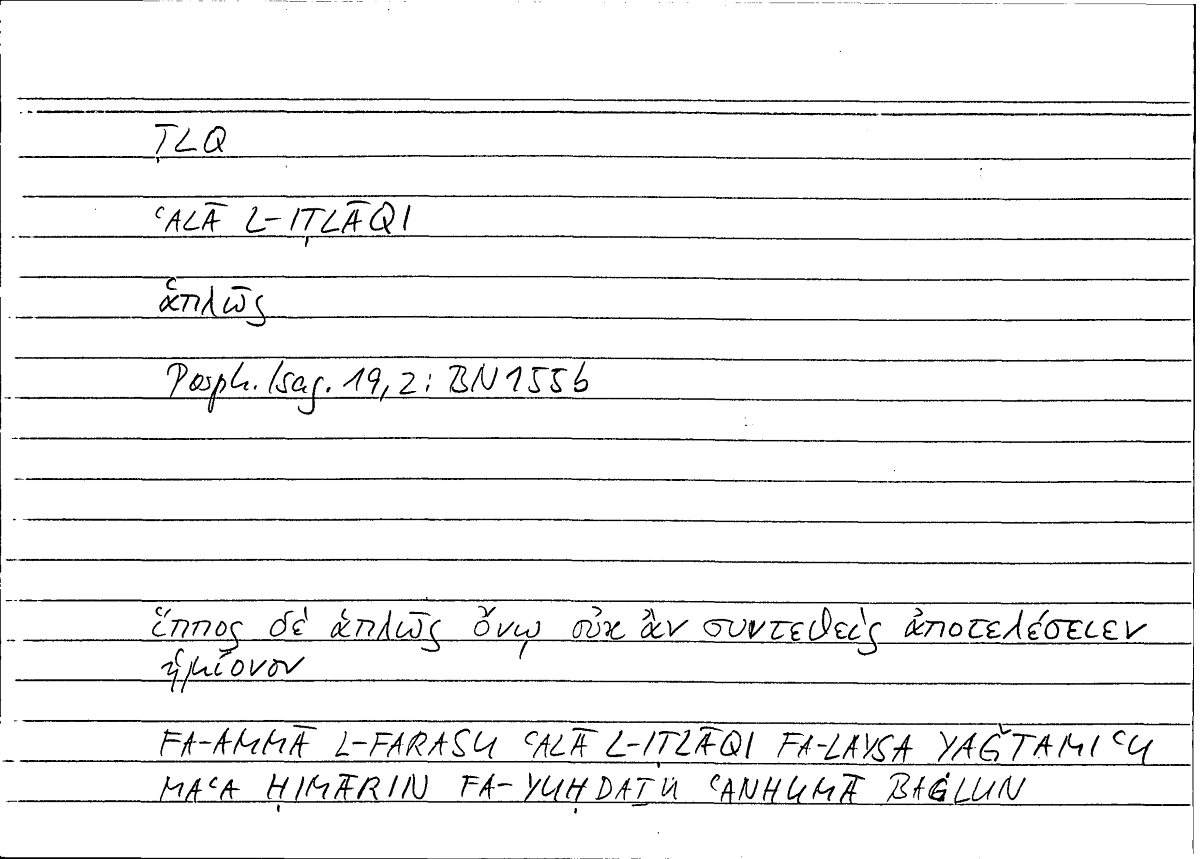 ṬLQ
ʿALĀ L-IṬLĀQI
ἁπλῶς
Porph. Isag. 19, 2: BN 155b
ἵππος δὲ ἁπλῶς ὄνῳ οὐκ ἂν συντεθεὶς ἀποτελέσειεν
ἡμίονον
FA-AMMĀ L-FARASU ʿALĀ L-IṬLĀQI FA-LAYSA YAǦTAMIʿU
MAʿA ḤIMĀRIN FA-YUḤDAṮU ʿANHUMĀ BAĠLUN